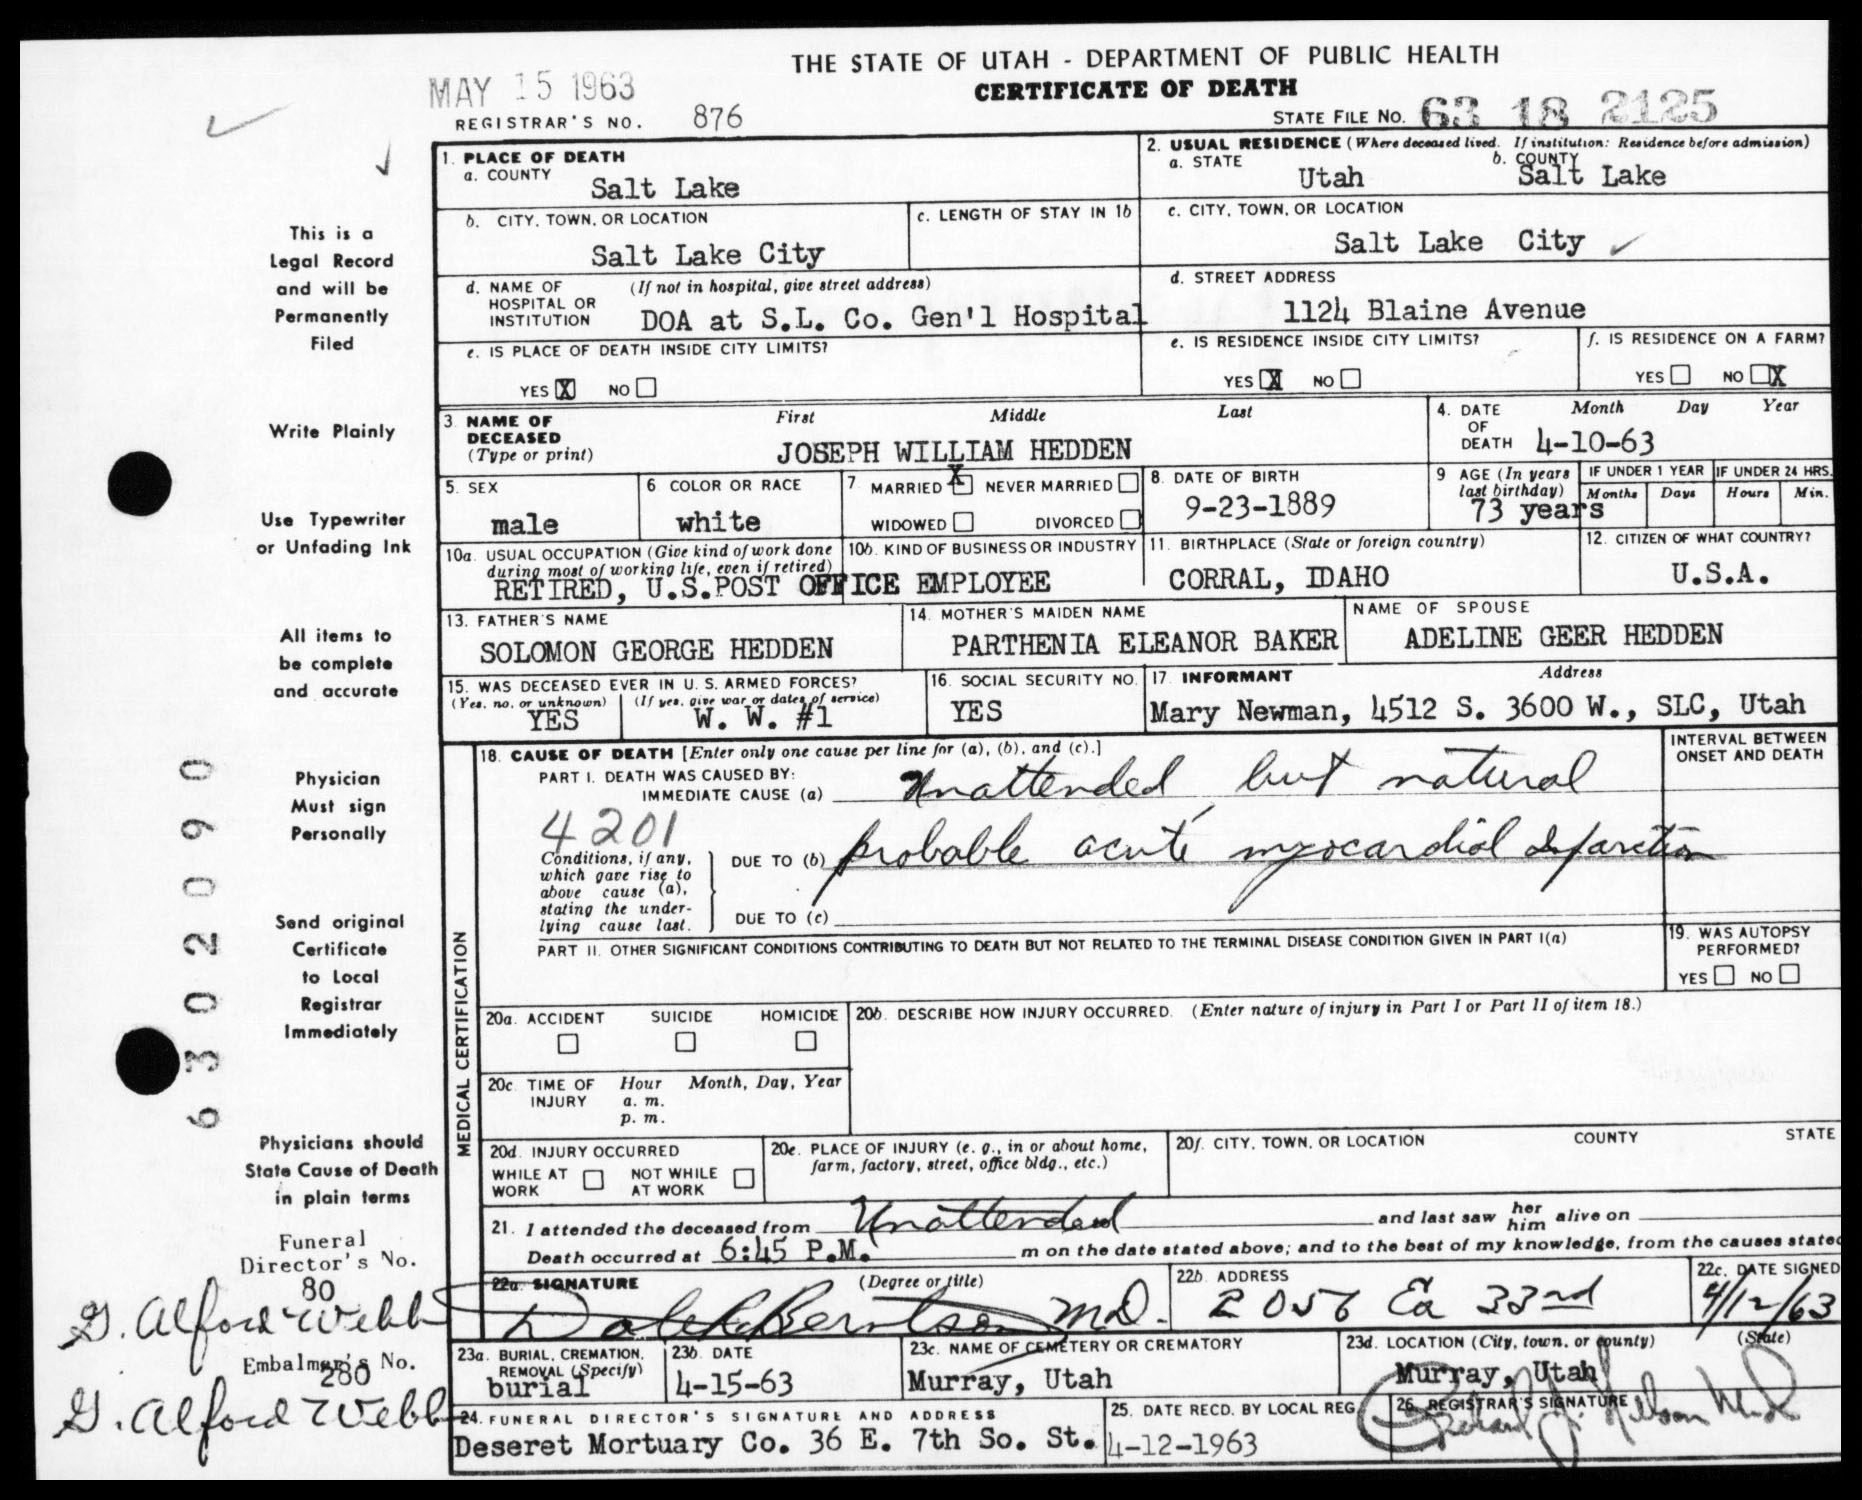 THE STATE OF UTAH - DEPARTMENT OF PUBLIC HEALTH
CERTIFICATE OF DEATH
MAY 15 1963
REGISTRAR'S NO. 876
STATE FILE NO. 63 18 2125
1. PLACE OF DEATH
a. COUNTY
Salt Lake
2. USUAL RESIDENCE (Where deceased lived. If institution: Residence before admission)
a. STATE
Utah
b. COUNTY
Salt Lake
b. CITY, TOWN, OR LOCATION
Salt Lake City
c. LENGTH OF STAY IN 1b
c. CITY, TOWN, OR LOCATION
Salt Lake City
d. NAME OF HOSPITAL OR INSTITUTION
(If not in hospital, give street address)
DOA at S.L. Co. Gen'l Hospital
d. STREET ADDRESS
1124 Blaine Avenue
e. IS PLACE OF DEATH INSIDE CITY LIMITS?
YES X NO
e. IS RESIDENCE INSIDE CITY LIMITS?
YES X NO
f. IS RESIDENCE ON A FARM?
YES NO X
3. NAME OF DECEASED
(Type or print)
First Middle Last
JOSEPH WILLIAM HEDDEN
4. DATE OF DEATH
Month Day Year
4-10-63
5. SEX
male
6 COLOR OR RACE
white
7 MARRIED X NEVER MARRIED
WIDOWED DIVORCED
8. DATE OF BIRTH
9-23-1889
9 AGE (In years last birthday)
73 years
IF UNDER 1 YEAR
Months Days
IF UNDER 24 HRS.
Hours Min.
10a. USUAL OCCUPATION (Give kind of work done during most of working life, even if retired)
10b. KIND OF BUSINESS OR INDUSTRY
RETIRED, U.S.POST OFFICE EMPLOYEE
11. BIRTHPLACE (State or foreign country)
CORRAL, IDAHO
12. CITIZEN OF WHAT COUNTRY?
U.S.A.
13. FATHER'S NAME
SOLOMON GEORGE HEDDEN
14. MOTHER'S MAIDEN NAME
PARTHENIA ELEANOR BAKER
NAME OF SPOUSE
ADELINE GEER HEDDEN
15. WAS DECEASED EVER IN U. S. ARMED FORCES?
(Yes, no, or unknown) (If yes, give war or dates of service)
YES W. W. #1
16. SOCIAL SECURITY NO.
YES
17. INFORMANT Address
Mary Newman, 4512 S. 3600 W., SLC, Utah
MEDICAL CERTIFICATION
18. CAUSE OF DEATH [Enter only one cause per line for (a), (b), and (c).]
INTERVAL BETWEEN ONSET AND DEATH
PART I. DEATH WAS CAUSED BY:
IMMEDIATE CAUSE (a) Unattended, but natural
4201
Conditions, if any, which gave rise to above cause (a), stating the underlying cause last.
DUE TO (b) probable acute myocardial infarction
DUE TO (c)
PART II. OTHER SIGNIFICANT CONDITIONS CONTRIBUTING TO DEATH BUT NOT RELATED TO THE TERMINAL DISEASE CONDITION GIVEN IN PART I(a)
19. WAS AUTOPSY PERFORMED?
YES NO
20a. ACCIDENT SUICIDE HOMICIDE
20b. DESCRIBE HOW INJURY OCCURRED. (Enter nature of injury in Part I or Part II of item 18.)
20c. TIME OF INJURY Hour Month, Day, Year
a. m.
p. m.
20d. INJURY OCCURRED
WHILE AT WORK NOT WHILE AT WORK
20e. PLACE OF INJURY (e. g., in or about home, farm, factory, street, office bldg., etc.)
20f. CITY, TOWN, OR LOCATION COUNTY STATE
21. I attended the deceased from Unattended and last saw her him alive on
Death occurred at 6:45 P.M. m on the date stated above; and to the best of my knowledge, from the causes stated
22a. SIGNATURE (Degree or title)
Dale R Berntson MD.
22b. ADDRESS
2056 Ea 33rd
22c. DATE SIGNED
4/12/63
23a. BURIAL, CREMATION, REMOVAL (Specify)
burial
23b. DATE
4-15-63
23c. NAME OF CEMETERY OR CREMATORY
Murray, Utah
23d. LOCATION (City, town, or county) (State)
Murray, Utah
24. FUNERAL DIRECTOR'S SIGNATURE AND ADDRESS
Deseret Mortuary Co. 36 E. 7th So. St.
25. DATE RECD. BY LOCAL REG.
4-12-1963
26. REGISTRAR'S SIGNATURE
This is a
Legal Record
and will be
Permanently
Filed
Write Plainly
Use Typewriter
or Unfading Ink
All items to
be complete
and accurate
Physician
Must sign
Personally
Send original
Certificate
to Local
Registrar
Immediately
Physicians should
State Cause of Death
in plain terms
Funeral
Director's No.
80
G. Alford Webb
Embalmer's No.
280
G. Alford Webb
6302090